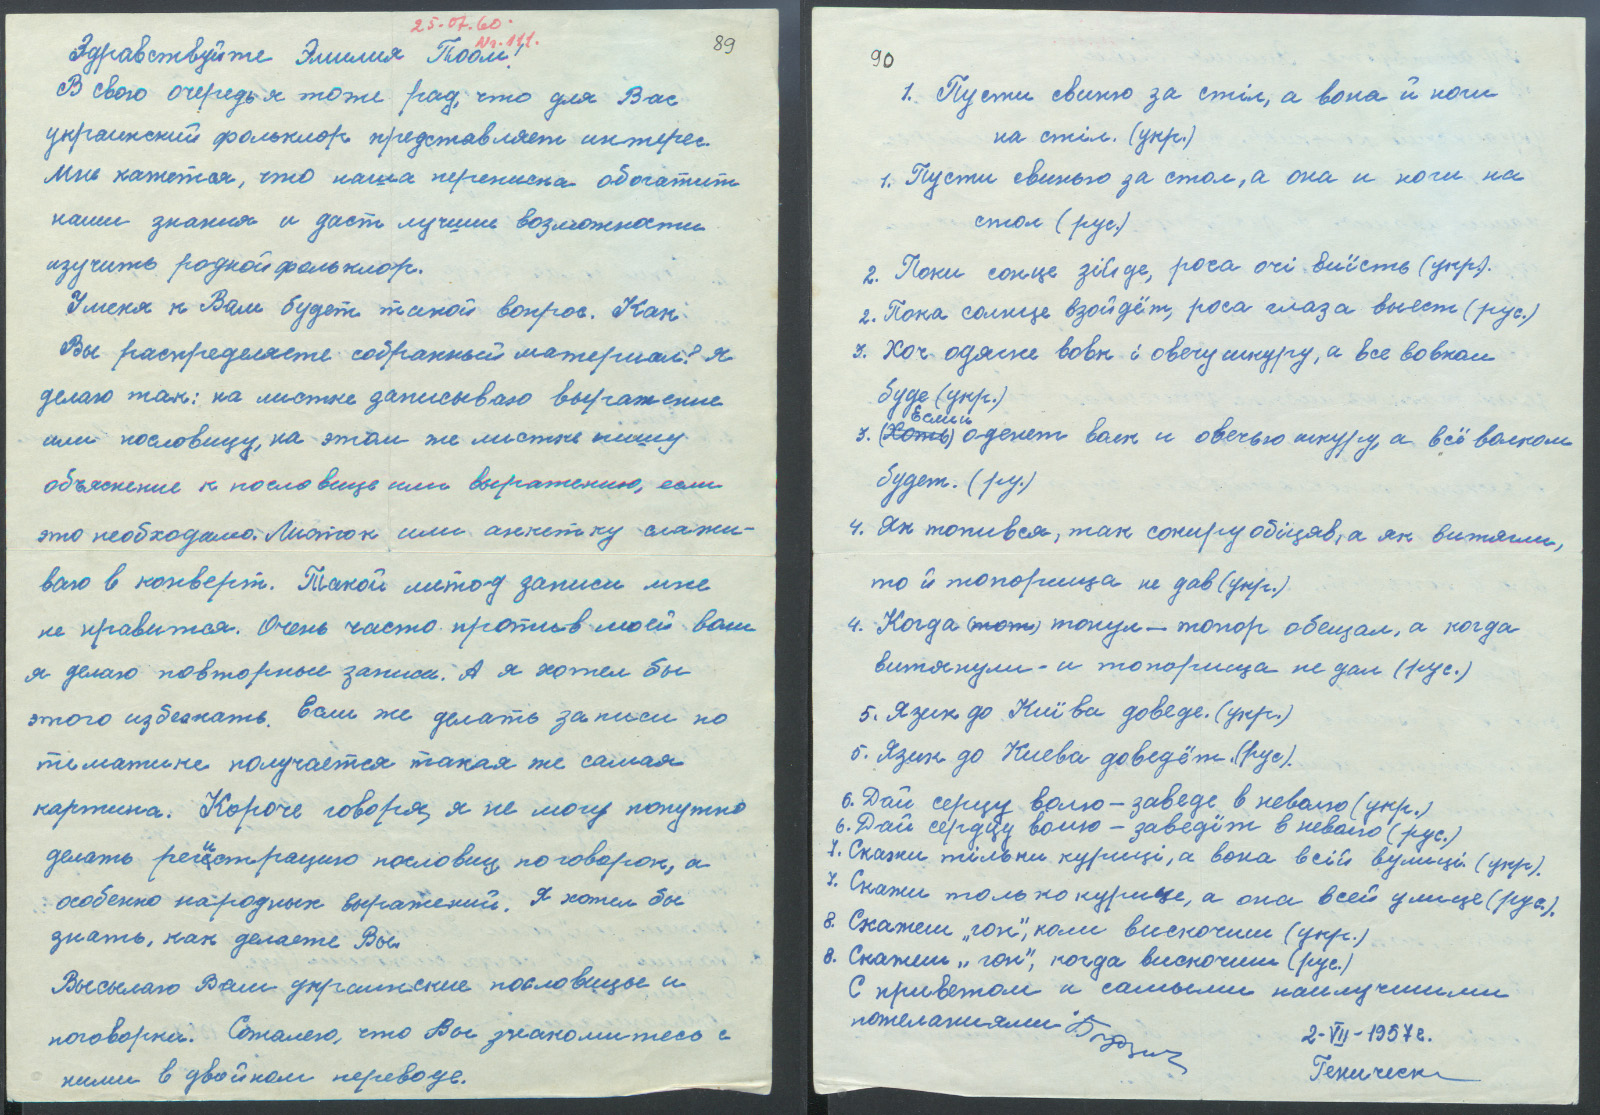 25.07.60.
Nr. 111.
89
Здравствуйте Эмилия Поом!
В свою очередь я тоже рад, что для Вас
украинский фольклор представляет интерес.
Мне кажется, что наша переписка обогатит
наши знания и даст лучшие возможности
изучить родной фольклор.
У меня к Вам будет такой вопрос. Как
Вы распределяете собранный материал? Я
делаю так: на листке записываю выражение
или пословицу, на этом же листке пишу
объяснение к пословице или выражению, если
это необходимо. Листок или анкетку склажи-
ваю в конверт. Такой метод записи мне
не нравится. Очень часто против моей воли
я делаю повторные записи. А я хотел бы
этого избежать. Если же делать записи по
тематике получается такая же самая
картина. Короче говоря, я не могу попутно
делать регистрацию пословиц, поговорок, а
особенно народных выражений. Я хотел бы
знать, как делаете Вы.
Высылаю Вам украинские пословицы и
поговорки. Сожалею, что Вы знакомитесь с
ними в двойном переводе.
90
1. Пусти свиню за стіл, а вона й ноги
на стіл. (укр.)
1. Пусти свинью за стол, а она и ноги на
стол (рус.)
2. Поки сонце зійде, роса очі виїсть (укр).
2. Пока солнце взойдёт, роса глаза выест (рус.)
3. Хоч одягне вовк і овечу шкуру, а все вовком
буде (укр.)
Если и
3. (Хоть) оденет волк и овечью шкуру, а всё волком
будет. (ру.)
4. Як топився, так сокиру обіцяв, а як витягли,
то й топорища не дав (укр.)
4. Когда (тот) тонул — топор обещал, а когда
витянули - и топорища не дал (рус.)
5. Язик до Київа доведе. (укр.)
5. Язик до Киева доведёт. (рус).
6. Дай серцу волю — заведе в неволю (укр.)
6. Дай сердцу волю — заведёт в неволю (рус.)
7. Скажи тільки куриці, а вона всій вулиці (укр).
7. Скажи только курице, а она всей улице (рус.).
8. Скажеш „гоп", коли вискочиш (укр.)
8. Скажеш „гоп", когда вискочиш (рус.)
С приветом и самыми наилучшими
пожеланиями
2-VII-1957г.
Геническ